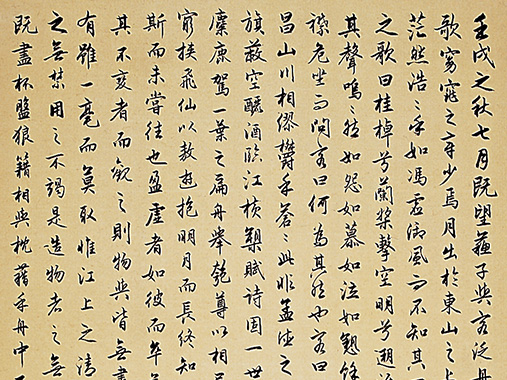 壬戌之秋七月既望蘇子與客泛舟
歌窈窕之章少焉月出於東山之上
茫然浩〻乎如馮虛御風而不知其
之歌曰桂棹兮蘭槳擊空明兮遡
其聲嗚〻然如怨如慕如泣如訴餘
襟危坐而問客曰何為其然也客曰
昌山川相繆鬱乎蒼〻此非孟德之
旗蔽空釃酒臨江橫槊賦詩固一世
麋鹿駕一葉之扁舟舉匏尊以相
窮挾飛仙以遨遊抱明月而長終知
斯而未嘗往也盈虛者如彼而卒
其不變者而觀之則物與皆無盡
有雖一毫而莫取惟江上之清
之無禁用之不竭是造物者之無
既盡杯盤狼籍相與枕藉乎舟中不